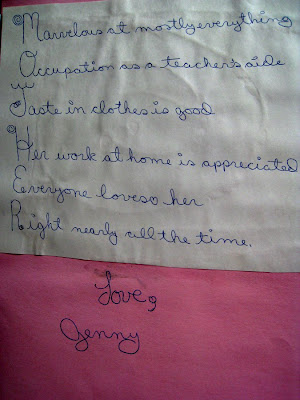 Marvelous at mostly everything
Occupation as a teacher's aide
Taste in clothes is good
Her work at home is appreciated
Everyone loveso her
Right nearly all the time.
Love,
Jenny